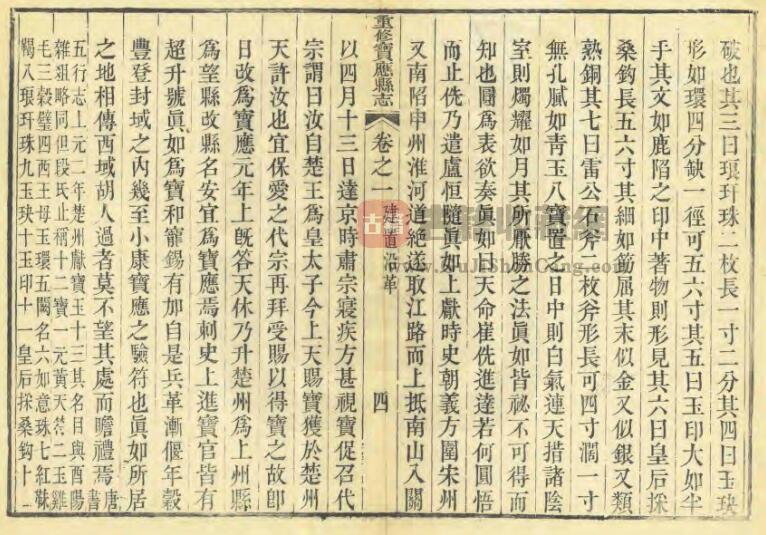 破也其三曰琅玕珠二枚長一寸二分其四曰玉玦
形如環四分缺一徑可五六寸其五曰玉印大如半
手其文如鹿陷之印中著物則形見其六曰皇后採
桑鈎長五六寸其細如筯屈其末似金又似銀又類
熟銅其七曰雷公石斧二枚斧形長可四寸濶一寸
無孔膩如青玉八寶置之日中則白氣連天措諸陰
室則燭耀如月其所厭勝之法眞如皆祕不可得而
知也圓爲表欲奏眞如曰天命崔侁進達若何圓悟
而止侁乃遣盧恒隨眞如上獻時史朝義方圍宋州
又南陷申州淮河道絕遂取江路而上抵南山入關
重修寶應縣志
卷之一
建置沿革
四
以四月十三日達京時肅宗寢疾方甚視寶促召代
宗謂曰汝自楚王爲皇太子今上天賜寶獲於楚州
天許汝也宜保愛之代宗再拜受賜以得寶之故卽
日改爲寶應元年上旣答天休乃升楚州爲上州縣
爲望縣改縣名安宜爲寶應焉刺史上進寶官皆有
超升號眞如爲寶和寵錫有加自是兵革漸偃年穀
豐登封域之內幾至小康寶應之驗符也眞如所居
之地相傳西域胡人過者莫不望其處而瞻禮焉唐書
五行志上元二年楚州獻寶玉十三其名目與酉陽
雜俎略同但段氏止稱十二寶一元黃天苻二玉雞
毛三穀璧四西王母玉環五闕名六如意珠七紅靺
鞨八琅玕珠九玉玦十玉印十一皇后採桑鈎十二
古籍
www.GuJiShouCang.com